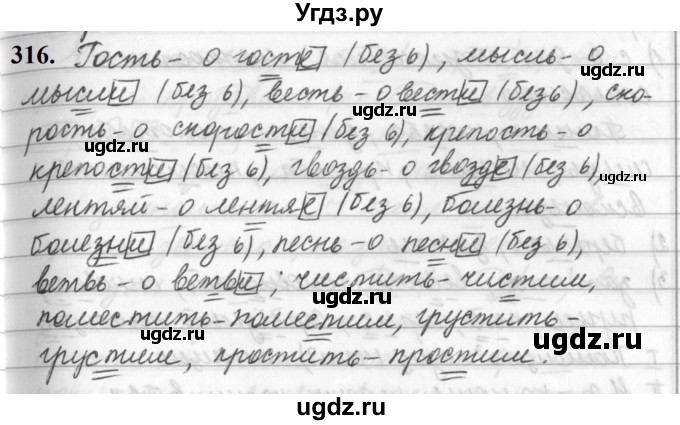 Угдз.ру
316. Гость – о госте (без ь), мысль – о
мысли (без ь), весть – о вести (без ь), ско-
рость – о скорости (без ь), крепость – о
крепости (без ь), гвоздь – о гвозде (без ь),
лентяй – о лентяе (без ь), болезнь – о
болезни (без ь), песнь – о песни (без ь),
ветвь – о ветви; чистить – чистим,
поместить – поместим, грустить –
грустим, простить – простим.
ugdz.ru
ugdz.ru
ugdz.ru
ugdz.ru
ugdz.ru
ugdz.ru
ugdz.ru
ugdz.ru
ugdz.ru
ugdz.ru
ugdz.ru